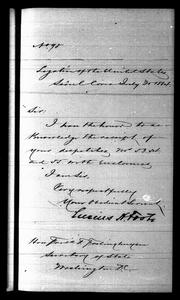 No 90
Legation of the United States
Seoul Corea July 30 1884
Sir
I have the honor to ac-
knowledge the receipt of
your despatches No 53 54
and 55 with enclosures
I am Sir
Very respectfully
Your Obedient Servant
Lucius H. Foote
Hon Fred'k T Frelinghuysen
Secretary of State
Washington D.C.